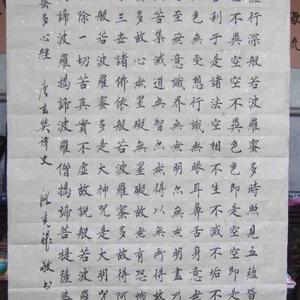 行深般若波羅蜜多時照見五蘊皆
色不異空空不異色色即是空空即是
利子是諸法空相不生不滅不垢不
色無受想行識無眼耳鼻舌身意無
至無意識界無無明亦無無明盡乃
集滅道無智亦無得以無所得故菩
多故心無罣礙無罣礙故無有恐
三世諸佛依般若波羅蜜多故得阿
般若波羅蜜多是大神咒是大
除一切苦真實不虛故說般若波羅
諦波羅揭諦波羅僧揭諦菩提薩婆
蜜多心經 唐玄奘譯 敬書